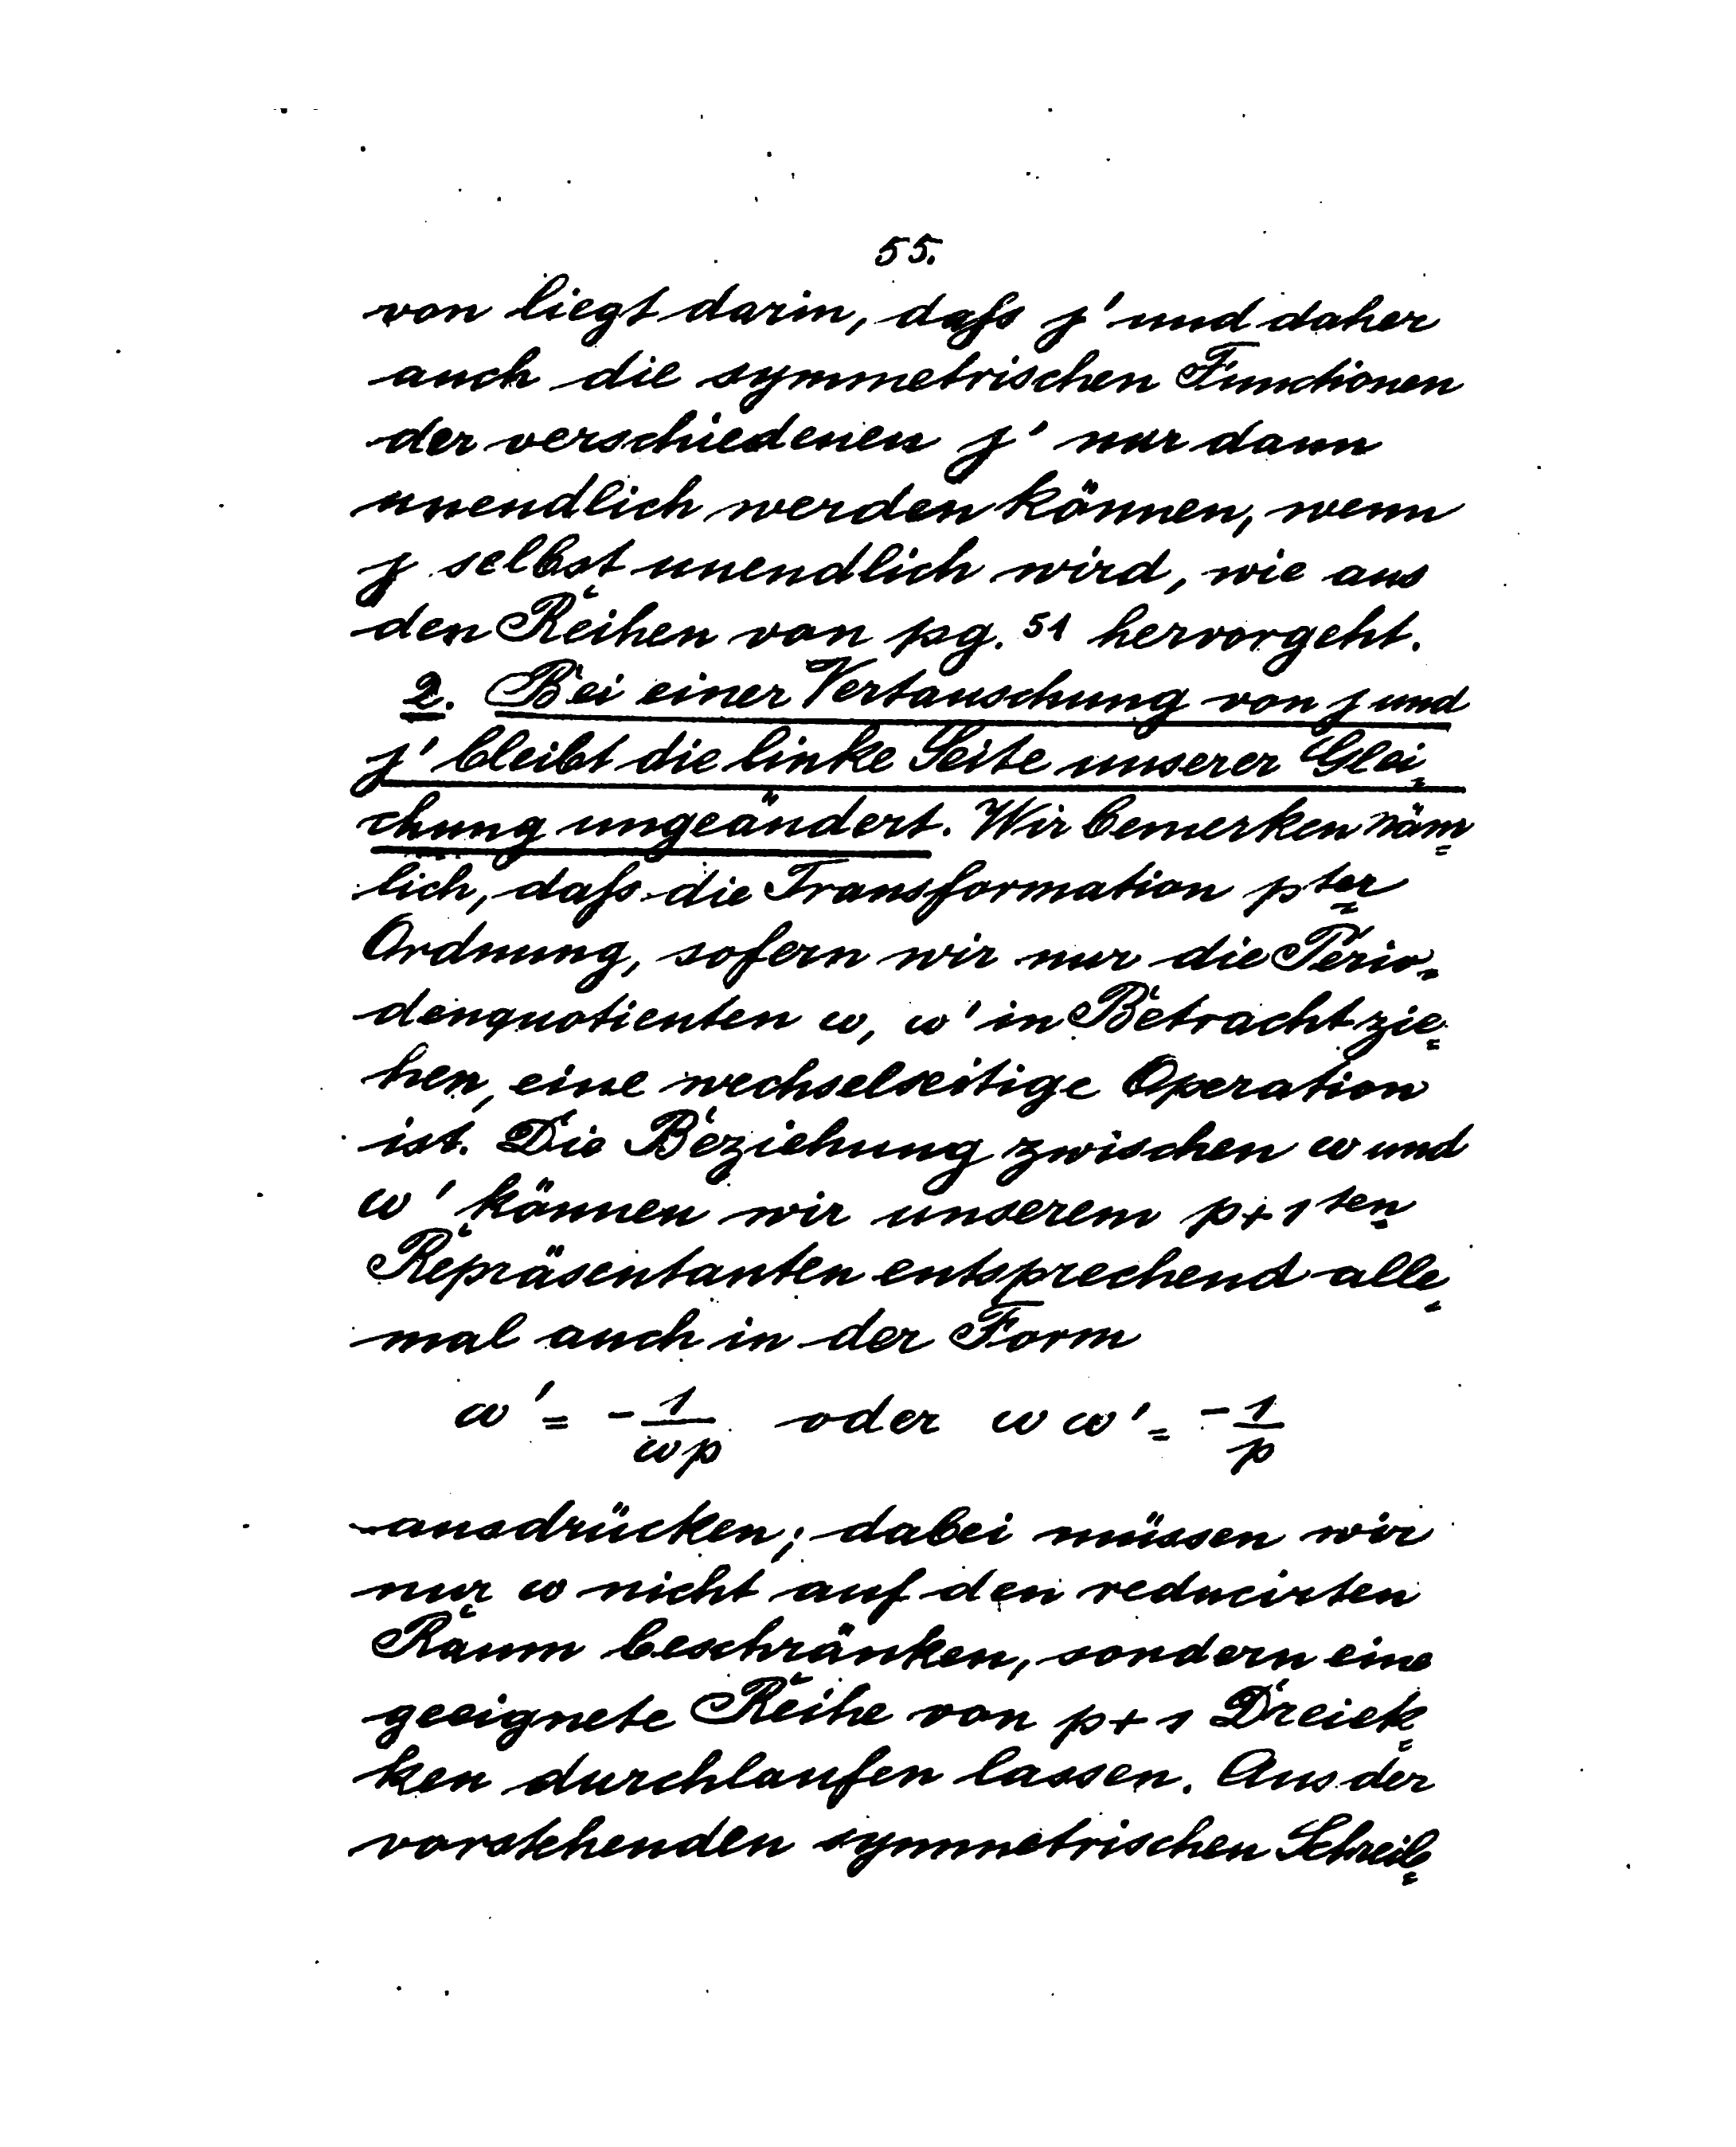 55.
von liegt darin, daſs j' und daher
auch die symmetrischen Functionen
der verschiedenen j' nur dann
unendlich werden können, wenn
j selbst unendlich wird, wie aus
den Reihen von pg. 51 hervorgeht.
2. Bei einer Vertauschung von j und
j' bleibt die linke Seite unserer Glei=
chung ungeändert. Wir bemerken näm=
lich, daſs die Transformation pter
Ordnung, sofern wir nur die Perio=
denquotienten ω, ω' in Betracht zie=
hen, eine wechselseitige Operation
ist. Die Beziehung zwischen ω und
ω' können wir unserem p+1ten
Repräsentanten entsprechend alle=
mal auch in der Form
ω' = -1/ωp oder ω ω' = -1/p
ausdrücken; dabei müssen wir
nur ω nicht auf den reducirten
Raum beschränken, sondern eine
geeignete Reihe von p+1 Dreiek=
ken durchlaufen lassen. Aus der
vorstehenden symmetrischen Schreib=